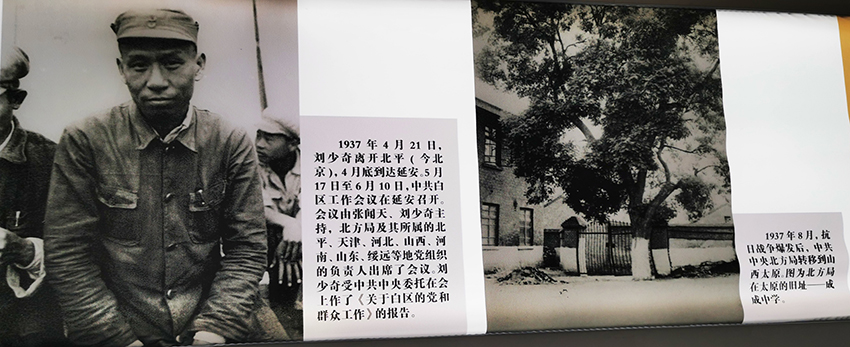 1937 年 4 月 21 日,
刘少奇离开北平 ( 今北
京 ), 4 月底到达延安。5 月
17 日至 6 月 10 日, 中共白
区工作会议在延安召开。
会议由张闻天、刘少奇主
持，北方局及其所属的北
平、天津、河北、山西、河
南、山东、绥远等地党组织
的负责人出席了会议。刘
少奇受中共中央委托在会
上作了《关于白区的党和
群众工作》的报告。
1937 年 8 月, 抗
日战争爆发后，中共
中央北方局转移到山
西太原。图为北方局
在太原的旧址——成
成中学。